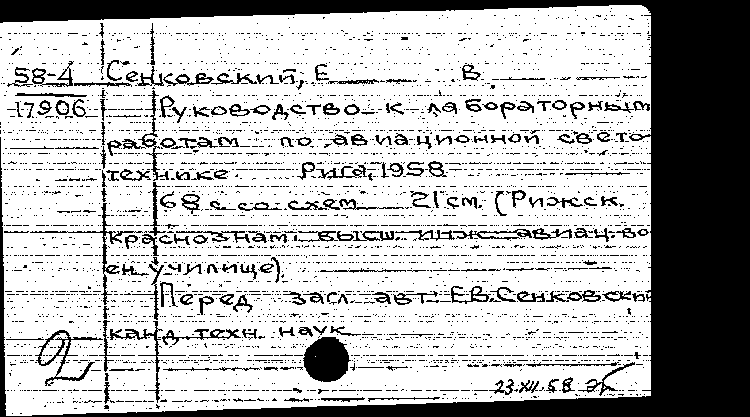 58-4 Сенковский, Е В
17906 Руководство к лабораторным
работам по авиационной свето-
технике Рига, 1958
68 с со схем 21 см. (Рижск.
краснознам. высш. инж. авиац. во
ен училище)
Перед загл авт: Е.В.Сенковский
канд. техн. наук
2
23.XII.58